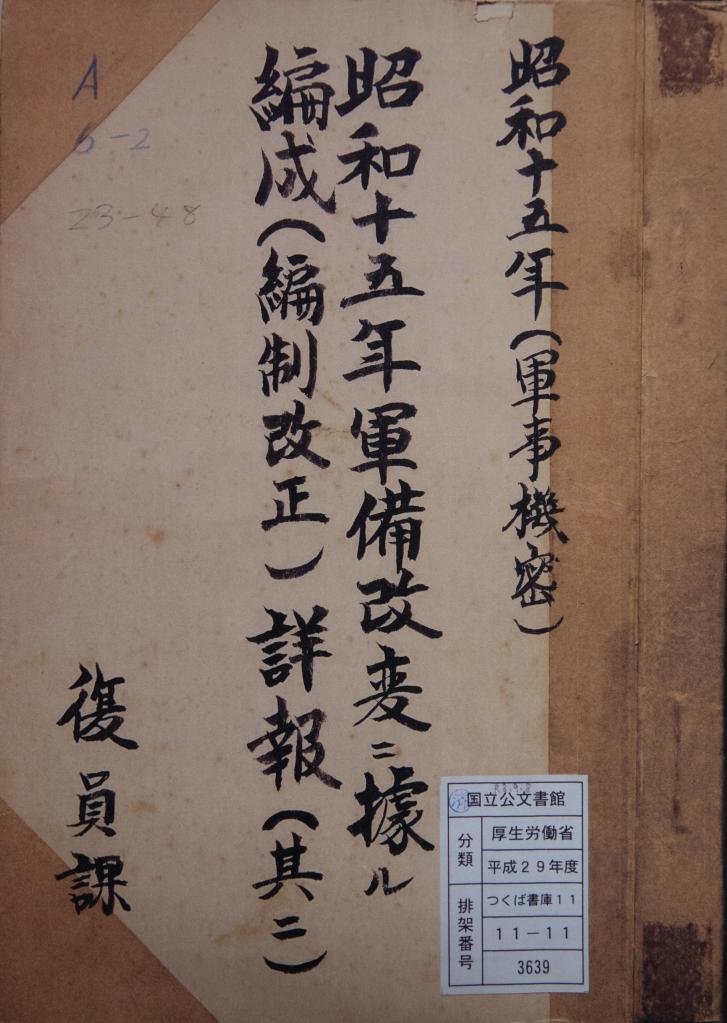 昭和十五年（軍事機密）
昭和十五年軍備改変ニ據ル
編成（編制改正）詳報（其二）
復員課
A
6-2
23-48
国立公文書館
分類
厚生労働省
平成２９年度
排架番号
つくば書庫１１
１１－１１
3639